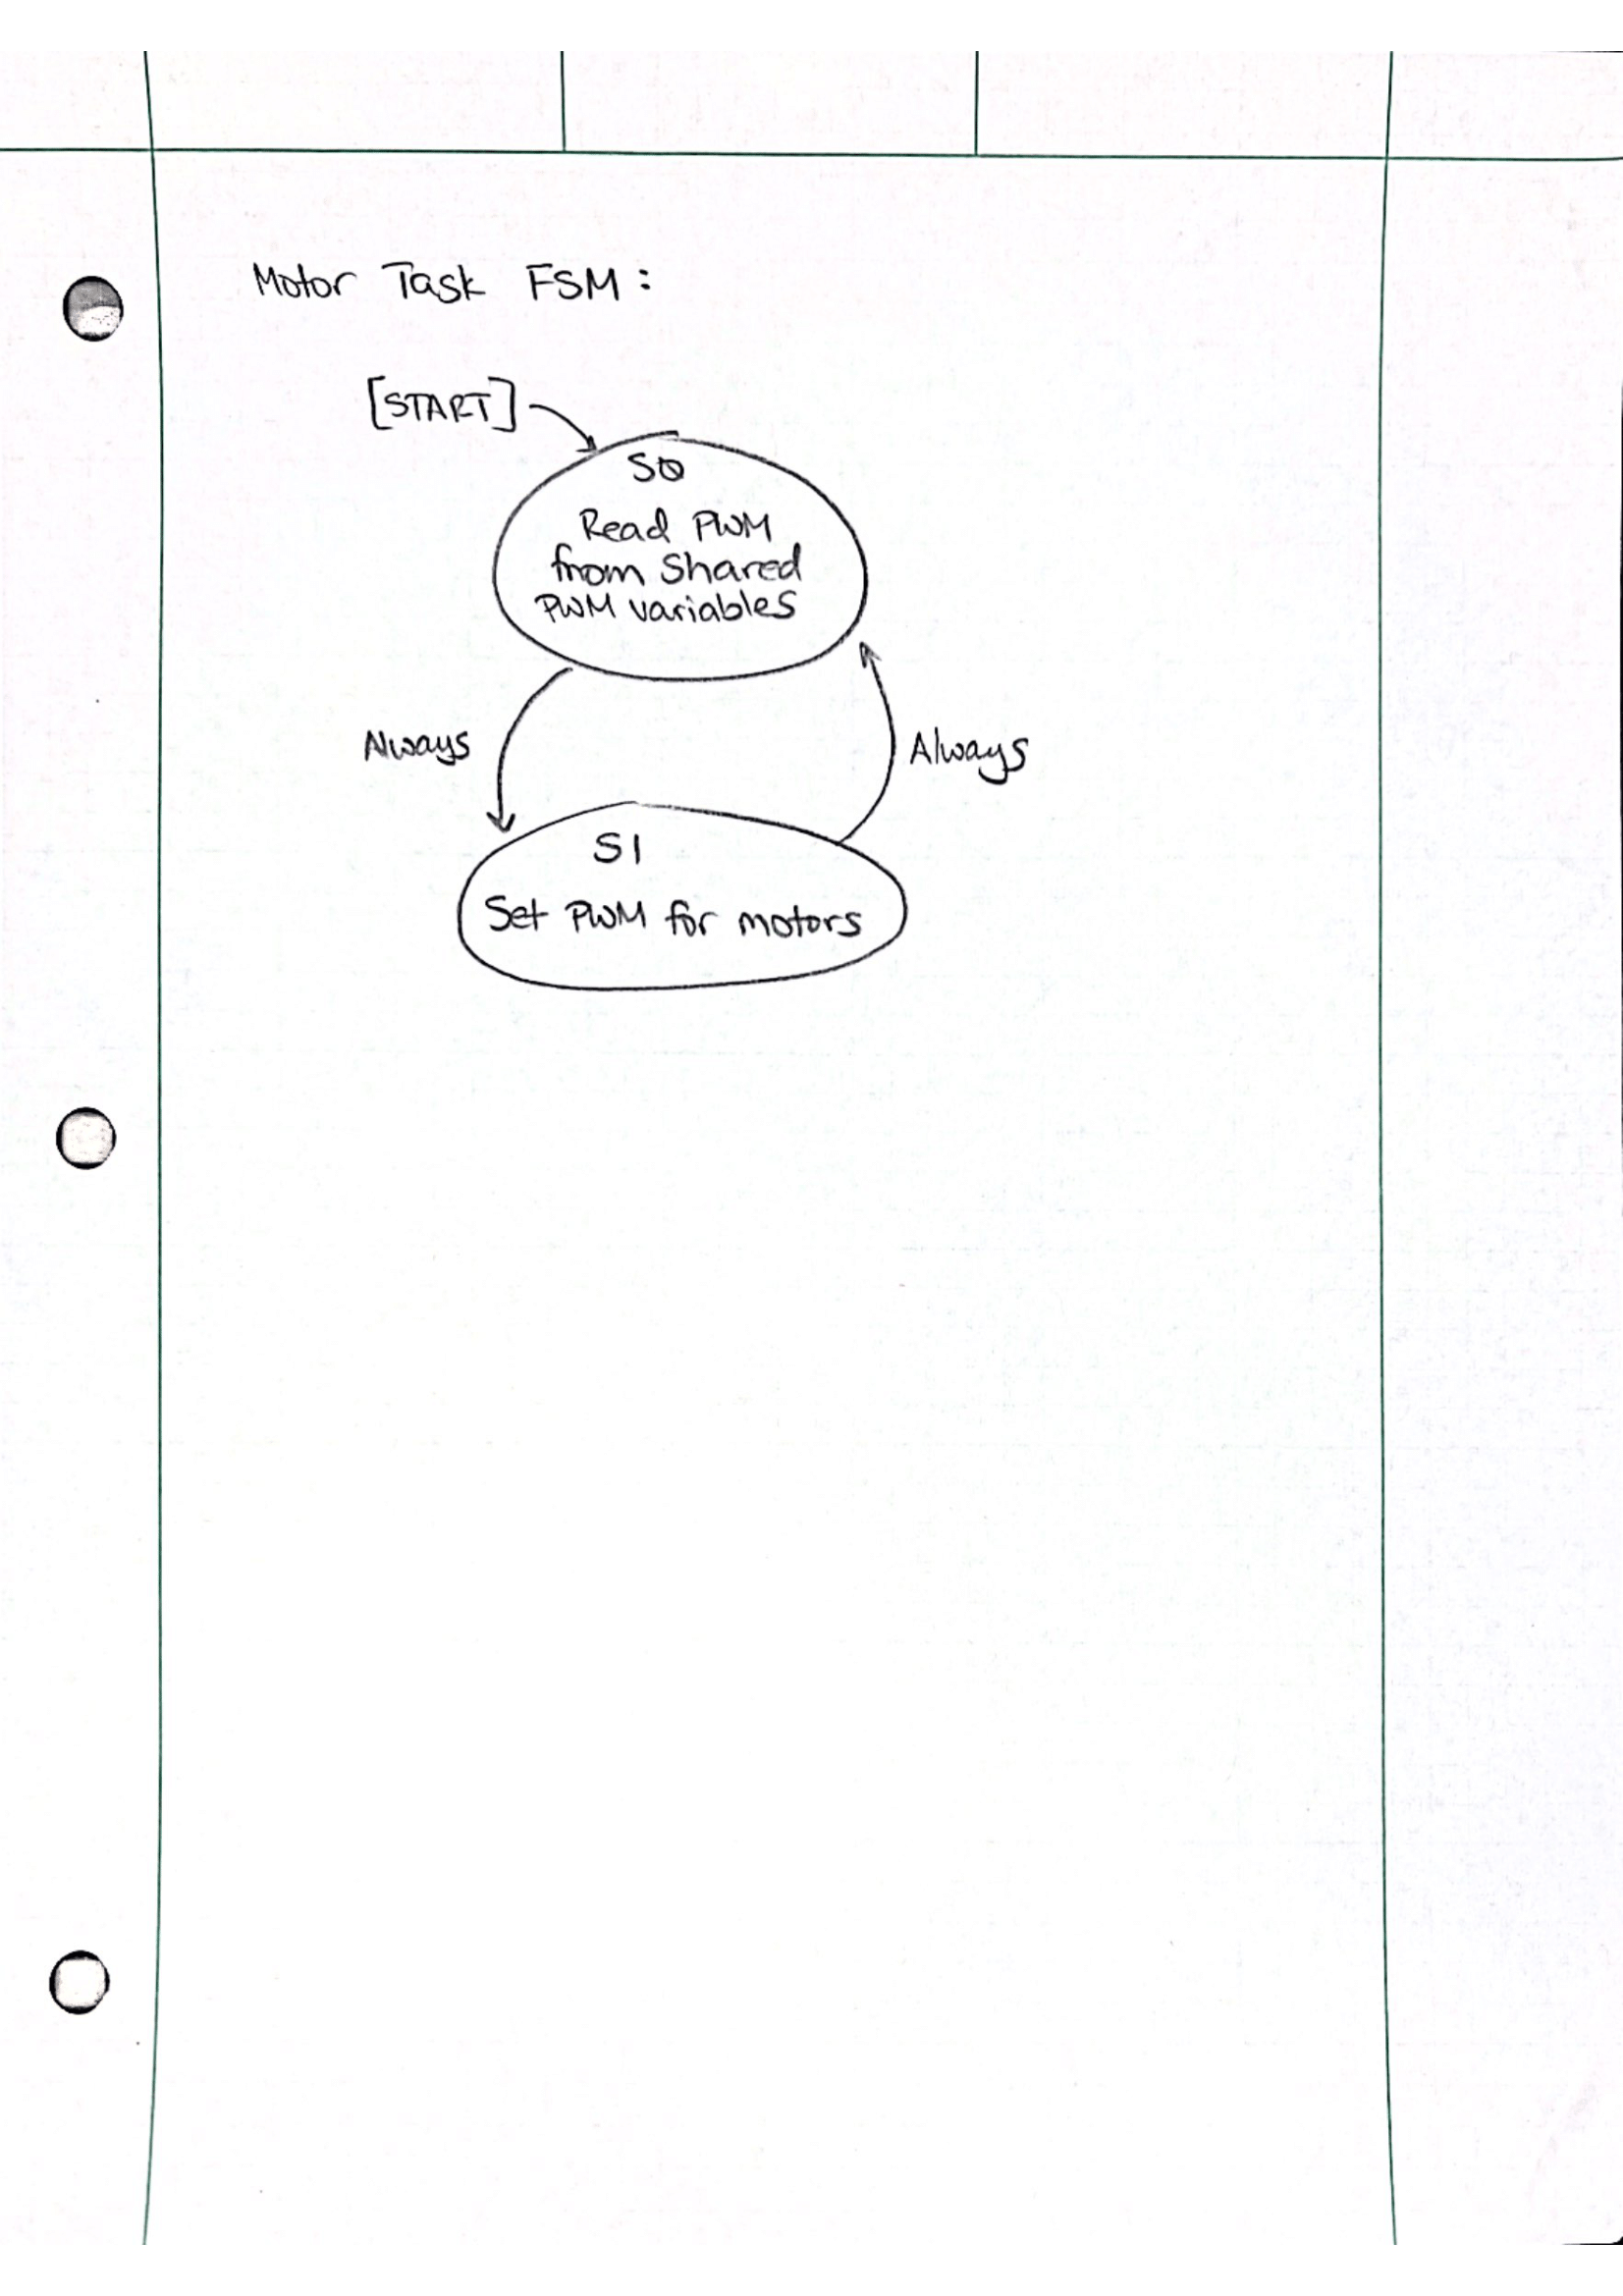 Motor Task FSM:
[START]
S0
Read PWM
from Shared
PWM variables
Always
Always
S1
Set PWM for motors